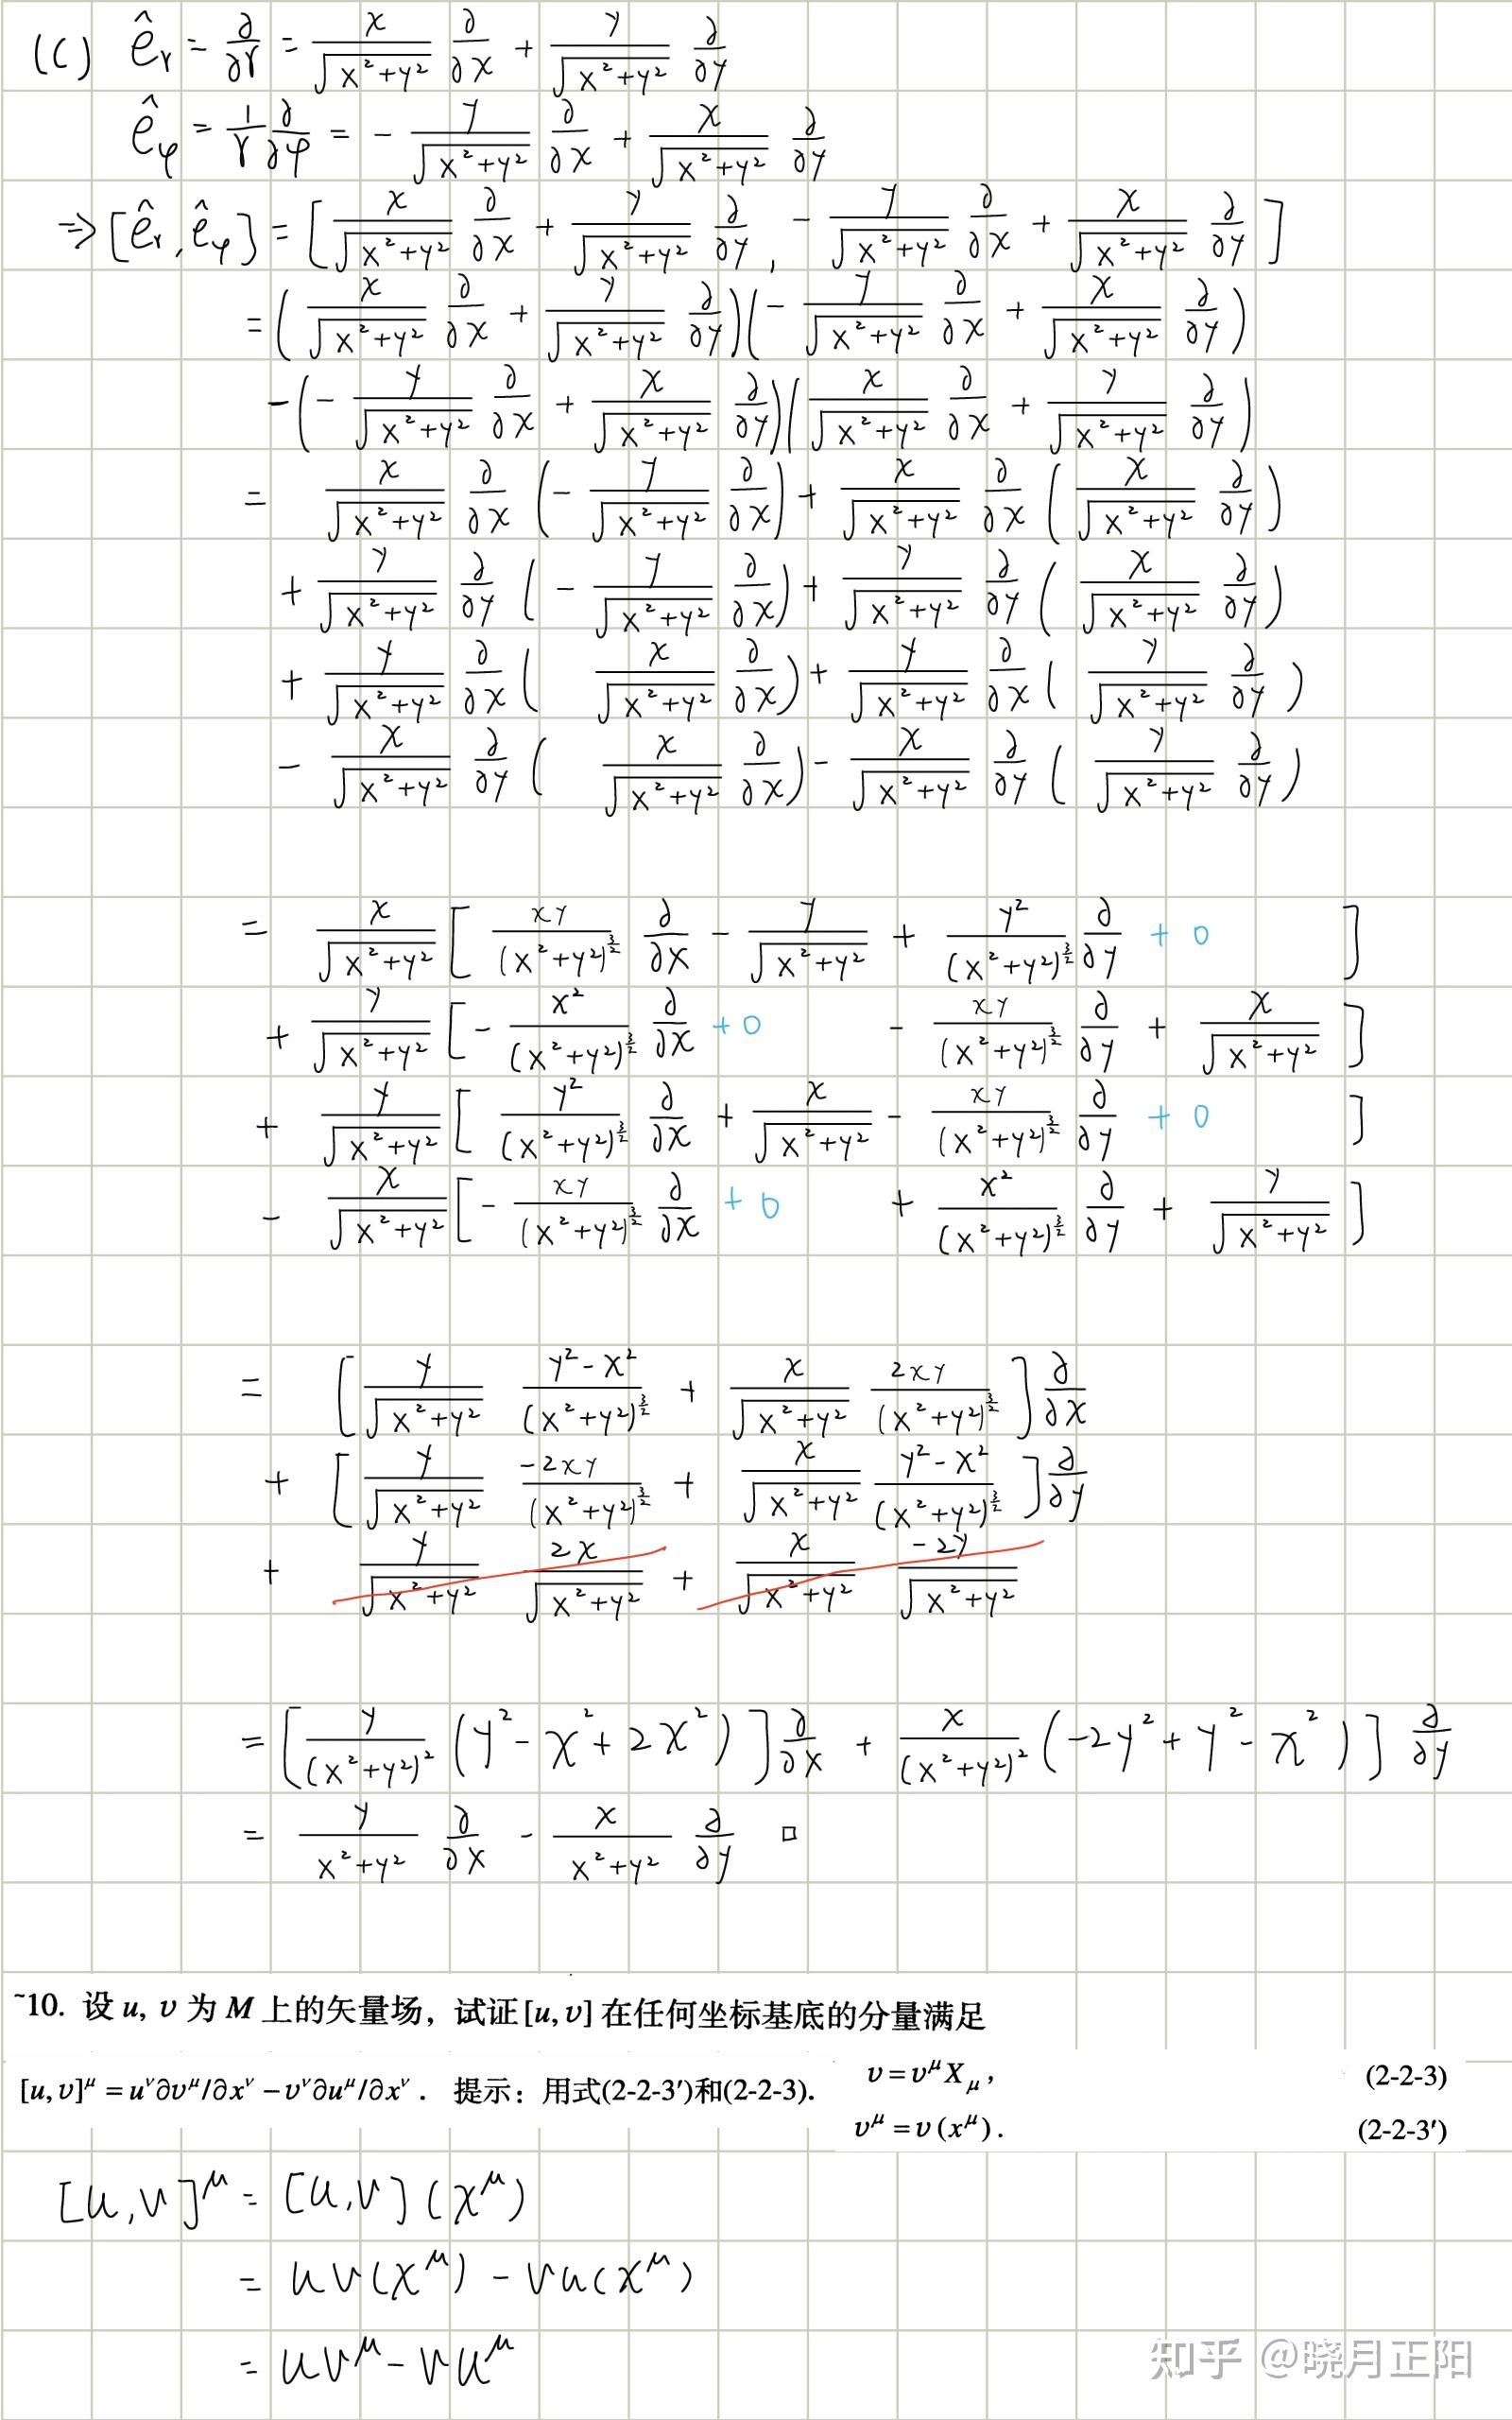 (C) ê_r = ∂/∂r = x/√(x²+y²) ∂/∂x + y/√(x²+y²) ∂/∂y
ê_φ = 1/r ∂/∂φ = - y/√(x²+y²) ∂/∂x + x/√(x²+y²) ∂/∂y
⇒ [ê_r, ê_φ] = [x/√(x²+y²) ∂/∂x + y/√(x²+y²) ∂/∂y, - y/√(x²+y²) ∂/∂x + x/√(x²+y²) ∂/∂y]
= (x/√(x²+y²) ∂/∂x + y/√(x²+y²) ∂/∂y)(- y/√(x²+y²) ∂/∂x + x/√(x²+y²) ∂/∂y)
- (- y/√(x²+y²) ∂/∂x + x/√(x²+y²) ∂/∂y)(x/√(x²+y²) ∂/∂x + y/√(x²+y²) ∂/∂y)
= x/√(x²+y²) ∂/∂x (- y/√(x²+y²) ∂/∂x) + x/√(x²+y²) ∂/∂x (x/√(x²+y²) ∂/∂y)
+ y/√(x²+y²) ∂/∂y (- y/√(x²+y²) ∂/∂x) + y/√(x²+y²) ∂/∂y (x/√(x²+y²) ∂/∂y)
+ y/√(x²+y²) ∂/∂x (x/√(x²+y²) ∂/∂x) + y/√(x²+y²) ∂/∂x (y/√(x²+y²) ∂/∂y)
- x/√(x²+y²) ∂/∂y (x/√(x²+y²) ∂/∂x) - x/√(x²+y²) ∂/∂y (y/√(x²+y²) ∂/∂y)
= x/√(x²+y²) [xy/(x²+y²)^(3/2) ∂/∂x - y/√(x²+y²) + y²/(x²+y²)^(3/2) ∂/∂y + 0]
+ y/√(x²+y²) [- x²/(x²+y²)^(3/2) ∂/∂x + 0 - xy/(x²+y²)^(3/2) ∂/∂y + x/√(x²+y²)]
+ y/√(x²+y²) [y²/(x²+y²)^(3/2) ∂/∂x + x/√(x²+y²) - xy/(x²+y²)^(3/2) ∂/∂y + 0]
- x/√(x²+y²) [- xy/(x²+y²)^(3/2) ∂/∂x + 0 + x²/(x²+y²)^(3/2) ∂/∂y + y/√(x²+y²)]
= [y/√(x²+y²) (y²-x²)/(x²+y²)^(3/2) + x/√(x²+y²) 2xy/(x²+y²)^(3/2)] ∂/∂x
+ [y/√(x²+y²) -2xy/(x²+y²)^(3/2) + x/√(x²+y²) (y²-x²)/(x²+y²)^(3/2)] ∂/∂y
+ y/√(x²+y²) 2x/√(x²+y²) + x/√(x²+y²) -2y/√(x²+y²)
= [y/(x²+y²)² (y²-x²+2x²)] ∂/∂x + x/(x²+y²)² (-2y²+y²-x²)] ∂/∂y
= y/(x²+y²) ∂/∂x - x/(x²+y²) ∂/∂y □
~10. 设 u, v 为 M 上的矢量场，试证[u,v] 在任何坐标基底的分量满足
[u,v]^μ = u^ν∂v^μ/∂x^ν − v^ν∂u^μ/∂x^ν . 提示：用式(2-2-3′)和(2-2-3).
v = v^μ X_μ , (2-2-3)
v^μ = v(x^μ) . (2-2-3′)
[u,v]^μ = [u,v](x^μ)
= uv(x^μ) - vu(x^μ)
= uv^μ - vu^μ
知乎 @晓月正阳